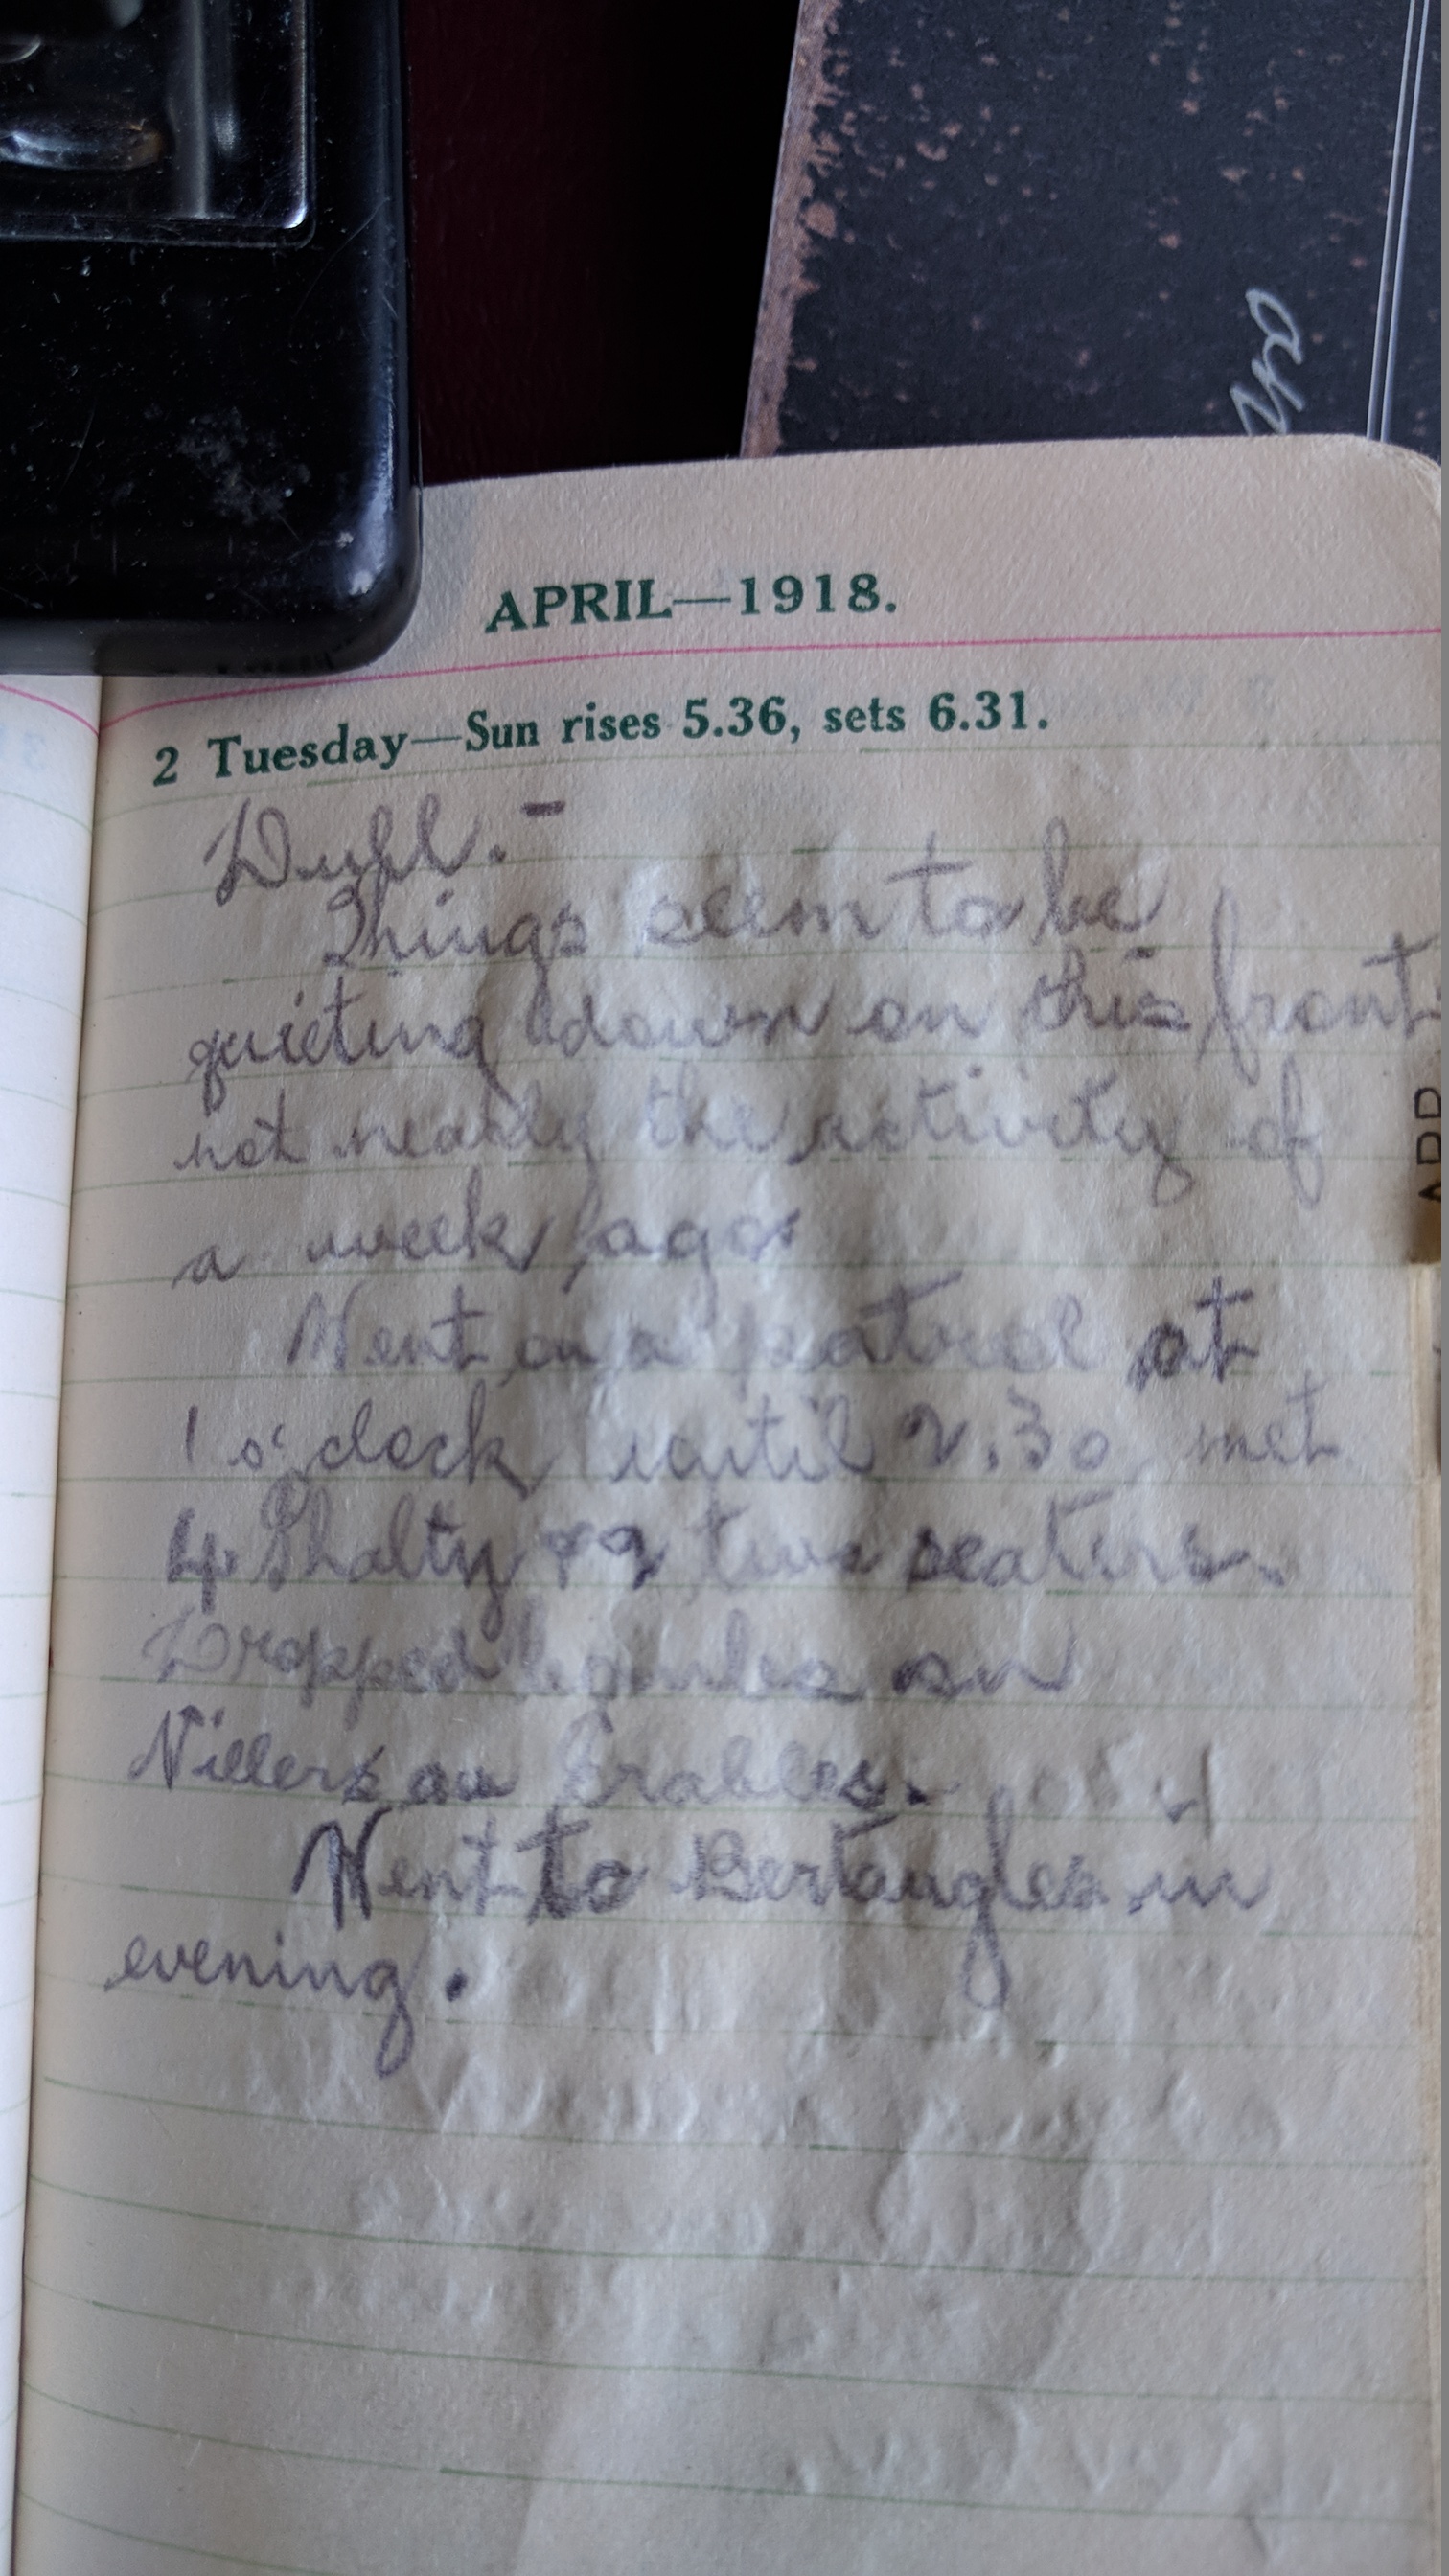 APRIL—1918.
2 Tuesday—Sun rises 5.36, sets 6.31.
Dull. -
Things seem to be
quieting down on this front
not nearly the activity of
a week ago
Went on a patrol at
1 o'clock until 2.30 met
4 two seaters.
Dropped bombs on
Villers au Erables.
Went to Bertangles in
evening.